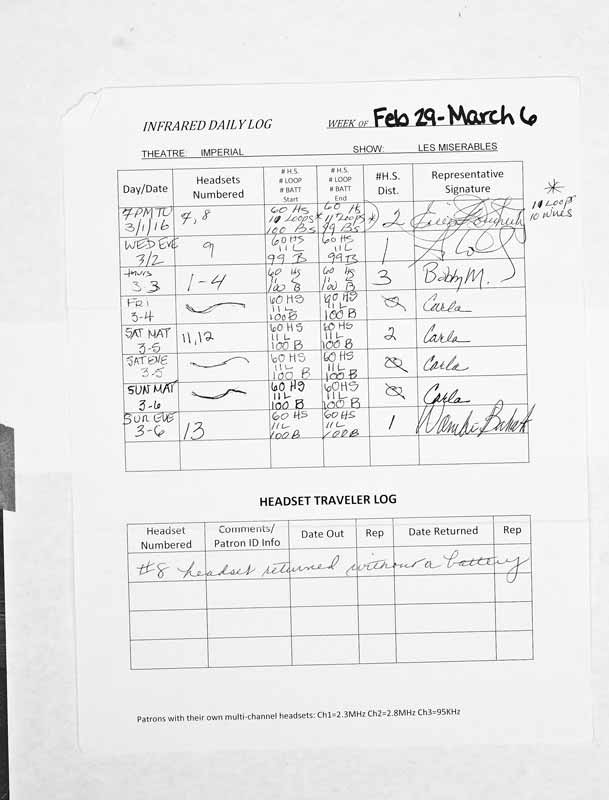 INFRARED DAILY LOG WEEK OF Feb 29-March 6
THEATRE: IMPERIAL SHOW: LES MISERABLES
Day/Date Headsets Numbered # H.S. # LOOP # BATT Start # H.S. # LOOP # BATT End #H.S. Dist. Representative Signature
*
11 Loop
10 wires
7PM TU 3/1/16 4, 8 60 HS 10 Loops* 100 Bs 60 HS 11 Loops* 99 Bs 2
WED EVE 3/2 9 60 HS 11 L 99 B 60 HS 11 L 99 B 1
THURS 3.3 1-4 60 HS 11 L 100 B 60 HS 11 L 100 B 3 Bobby M.
FRI 3-4 60 HS 11 L 100 B 60 HS 11 L 100 B Ø Carla
SAT MAT 3-5 11, 12 60 HS 11 L 100 B 60 HS 11 L 100 B 2 Carla
SAT EVE 3-5 60 HS 11 L 100 B 60 HS 11 L 100 B Ø Carla
SUN MAT 3-6 60 HS 11 L 100 B 60 HS 11 L 100 B Ø Carla
SUN EVE 3-6 13 60 HS 11 L 100 B 60 HS 11 L 100 B 1
HEADSET TRAVELER LOG
Headset Numbered Comments/ Patron ID Info Date Out Rep Date Returned Rep
#8 headset returned without a battery
Patrons with their own multi-channel headsets: Ch1=2.3MHz Ch2=2.8MHz Ch3=95KHz